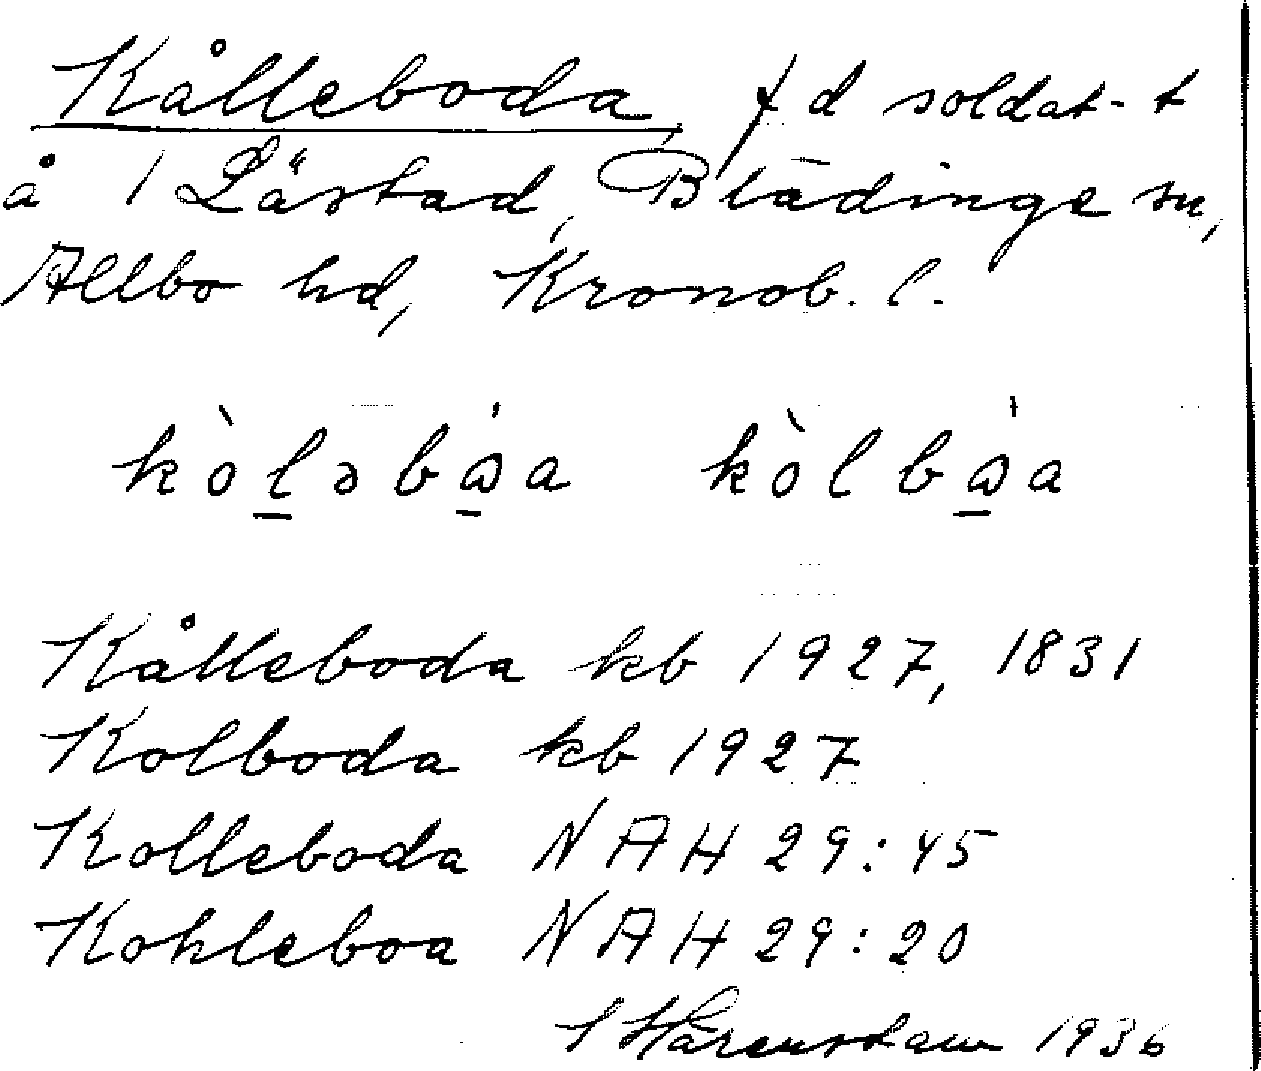 Kålleboda, f d soldat-t
å 1 Lästad, Blädinge sn,
Allbo hd, Kronob. l.
kòləbɷ̀a kòlbɷ̀a
Kålleboda kb 1927, 1831
Kolboda kb 1927
Kolleboda NAH 29:45
Kohleboa NAH 29:20
Härenstam 1936